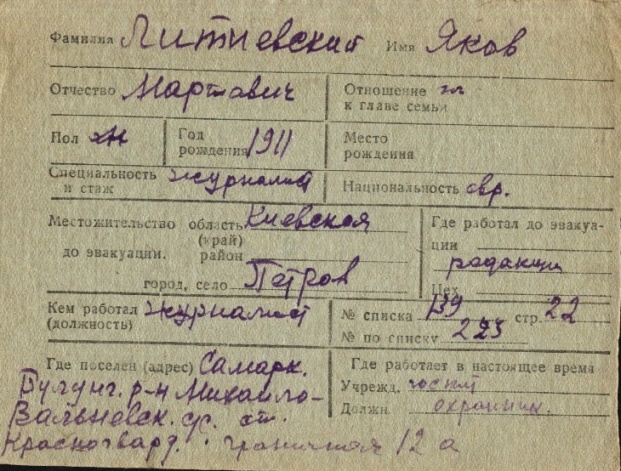 Фамилия Литневский Имя Яков
Отчество Мартович Отношение к главе семьи гл
Пол м Год рождения 1911 Место рождения
Специальность и стаж журналист Национальность евр.
Местожительство до эвакуации. область (край) Киевская
район
город, село Петров
Где работал до эвакуации редакции
Цех
Кем работал (должность) журналист № списка 139 стр. 22
№ по списку 223
Где поселен (адрес) Самарк.
Булунг. р-н Михайло-
Вальновск. с/с. ст.
Красногвард. граничная 12 а
Где работает в настоящее время
Учрежд. госпит
Должн. охранник.